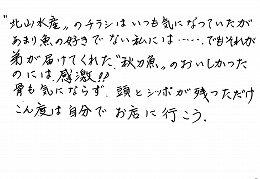 "北山水産〟のチラシはいつも気になっていたが
あまり魚の好きでない私には……。でもそれが
弟が届けてくれた〝秋刀魚〟のおいしかった
のには、感激!!
骨も気にならず、頭とシッポが残っただけ
こん度は自分でお店に行こう。